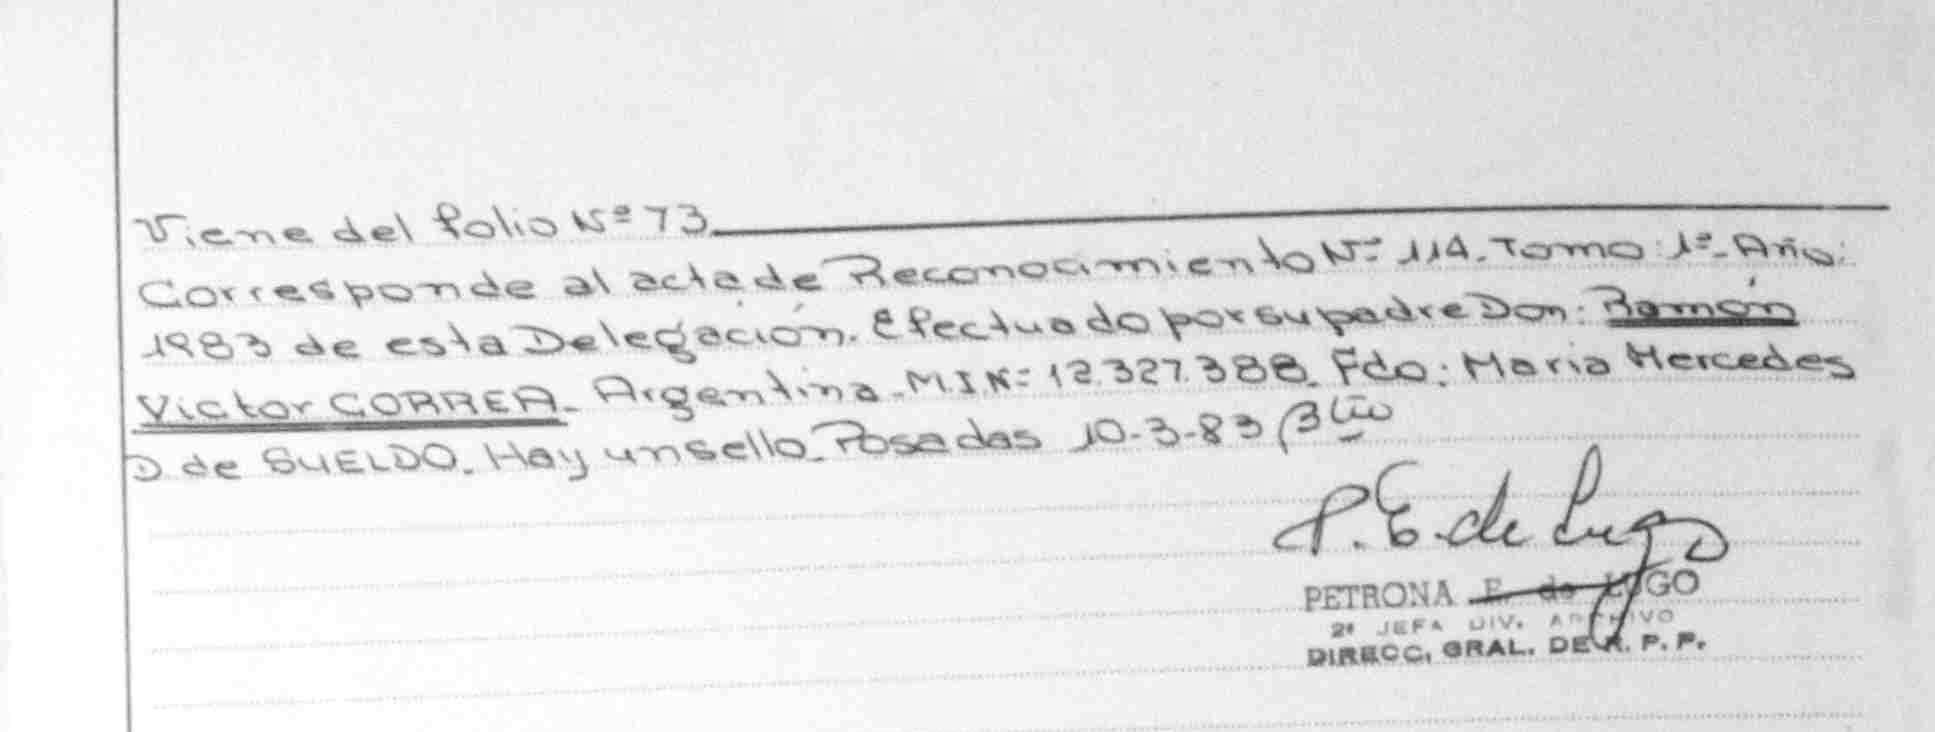 Viene del folio Nº 73
Corresponde al acta de Reconocimiento Nº 114. Tomo: 1º. Año:
1983 de esta Delegación. Efectuado por su padre Don: Ramón
Victor CORREA. Argentina. M.I Nº: 12.327.388. Fdo: Maria Mercedes
D de SUELDO. Hay un sello. Posadas 10-3-83
P. E. de Lugo
PETRONA E. de LUGO
2ª JEFA DIV. ARCHIVO
DIRECC. GRAL. DE R. P. P.